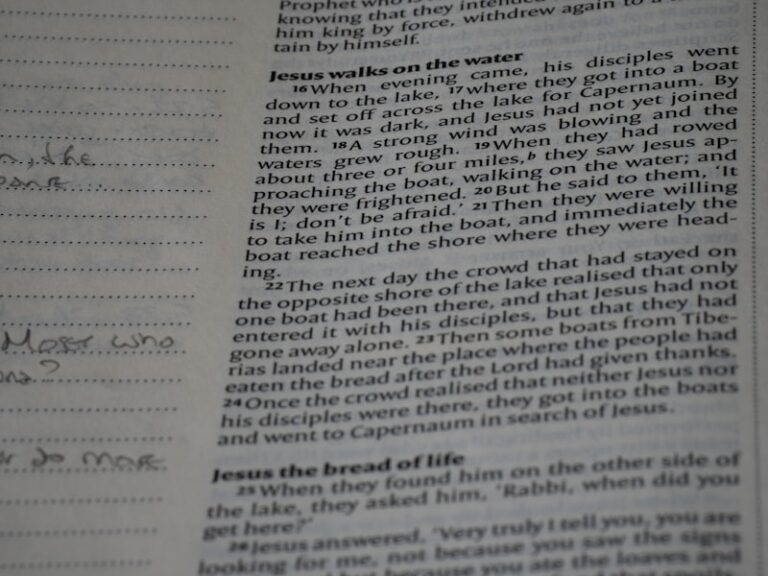 Prophet who is
knowing that they intended
him king by force, withdrew again to a
tain by himself.
Jesus walks on the water
16When evening came, his disciples went
down to the lake, 17where they got into a boat
and set off across the lake for Capernaum. By
now it was dark, and Jesus had not yet joined
them. 18A strong wind was blowing and the
waters grew rough. 19When they had rowed
about three or four miles,b they saw Jesus ap-
proaching the boat, walking on the water; and
they were frightened. 20But he said to them, ‘It
is I; don’t be afraid.’ 21Then they were willing
to take him into the boat, and immediately the
boat reached the shore where they were head-
ing.
22The next day the crowd that had stayed on
the opposite shore of the lake realised that only
one boat had been there, and that Jesus had not
entered it with his disciples, but that they had
gone away alone. 23Then some boats from Tibe-
rias landed near the place where the people had
eaten the bread after the Lord had given thanks.
24Once the crowd realised that neither Jesus nor
his disciples were there, they got into the boats
and went to Capernaum in search of Jesus.
Jesus the bread of life
25When they found him on the other side of
the lake, they asked him, ‘Rabbi, when did you
get here?’
26Jesus answered, ‘Very truly I tell you, you are
looking for me, not because you saw the signs
but because you ate the loaves and
the
who
do